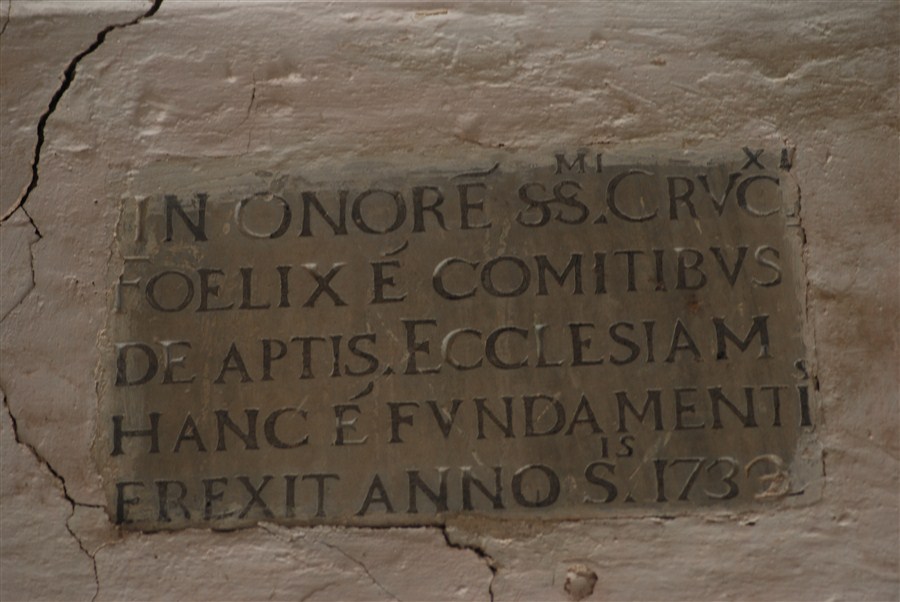 IN ONORÉ SS.MI CRVCXI
FOELIX É COMITIBVS
DE APTIS. ECCLESIAM
HANC É FVNDAMENTIS
EREXIT ANNO S.IS